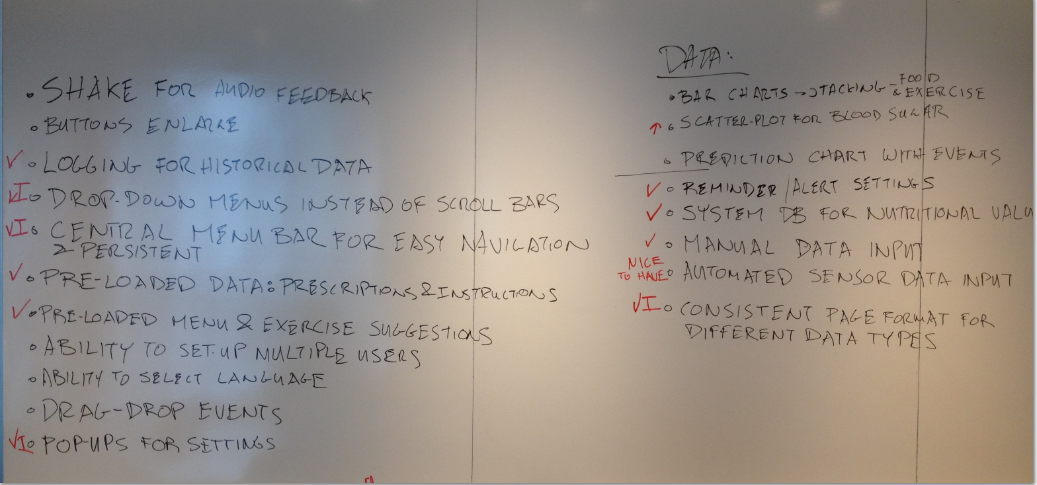 • SHAKE FOR AUDIO FEEDBACK
• BUTTONS ENLARKE
✓ • LOGGING FOR HISTORICAL DATA
✓I • DROP-DOWN MENUS INSTEAD OF SCROLL BARS
✓I • CENTRAL MENU BAR FOR EASY NAVIGATION
& PERSISTENT
✓ • PRE-LOADED DATA: PRESCRIPTIONS & INSTRUCTIONS
✓ • PRE-LOADED MENU & EXERCISE SUGGESTIONS
• ABILITY TO SET UP MULTIPLE USERS
• ABILITY TO SELECT LANGUAGE
• DRAG-DROP EVENTS
✓I • POP-UPS FOR SETTINGS
DATA:
• BAR CHARTS → STACKING - FOOD
& EXERCISE
↑ • SCATTER-PLOT FOR BLOOD SUGAR
• PREDICTION CHART WITH EVENTS
✓ • REMINDER/ALERT SETTINGS
✓ • SYSTEM DB FOR NUTRITIONAL VALU
✓ • MANUAL DATA INPUT
NICE
TO HAVE • AUTOMATED SENSOR DATA INPUT
✓I • CONSISTENT PAGE FORMAT FOR
DIFFERENT DATA TYPES